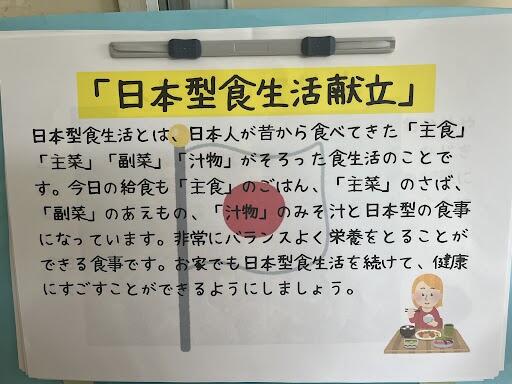 「日本型食生活献立」
日本型食生活とは、日本人が昔から食べてきた「主食」
「主菜」「副菜」「汁物」がそろった食生活のことで
す。今日の給食も「主食」のごはん、「主菜」のさば、
「副菜」のあえもの、「汁物」のみそ汁と日本型の食事
になっています。非常にバランスよく栄養をとることが
できる食事です。お家でも日本型食生活を続けて、健康
にすごすことができるようにしましょう。